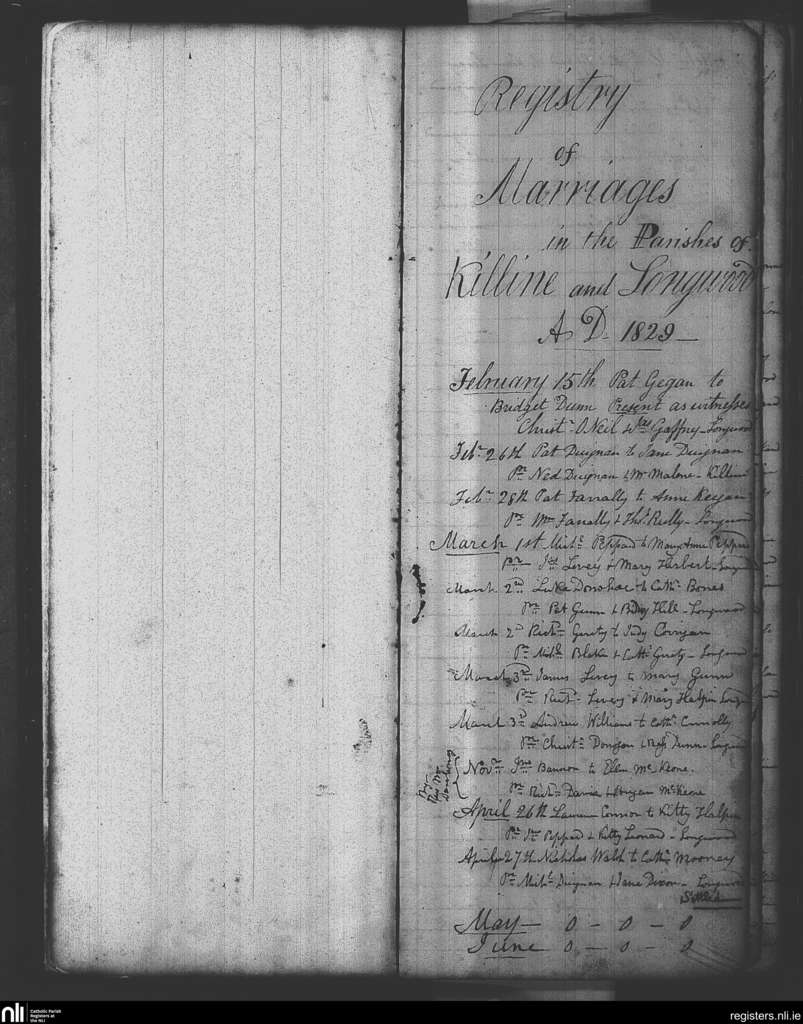 Registry
of
Marriages
in the Parishes of
Killine and Longwood
A D. 1829
February 15th Pat Gegan to
Bridget Dunn Present as witnesses
Christr. O.Neil & Jas Gaffney - Longwood
Feb. 26th Pat Duignan to Jane Duignan
Pr. Ned Duignan & Wm Malone - Killine
Feb. 28th Pat Farrally to Anne Keegan
Pr. Wm Farrally & Thos. Reilly - Longwood
March 1st Michl. Peppard to Mary Anne Peppard
Pr. Levey & Mary Herbert - Longwood
March 2nd Luke Donohoe to Cath. Bones
Pr. Pat Gunn & Biddy Hill - Longwood
March 2d Richd. Geraty to Judy Corrigan
Pr. Michl. Blake & Cath. Geraty - Longwood
March 3rd James Levey to Mary Gunn
Pr. Richd. Levey & Mary Halpin Longwood
March 3d Andrew Williams to Cath. Connolly
Pr. Christr. & Dunn - Longwood
By
Revd Mr
Novr. Jno Bannon to Ellen McKeone.
Pr. Richd. Davis & McKeone
April 26th Laurence Connor to Kitty Halpin
Pr. Jno Peppard & Kitty Leonard - Longwood
April 27th Nicholas Walsh to Cath. Mooney
Pr. Michl. Duignan & Jane Dixon - Longwood
May - 0 - 0 - 0
June 0 - 0 - 0
nli
Catholic Parish
Registers at
the NLI
registers.nli.ie